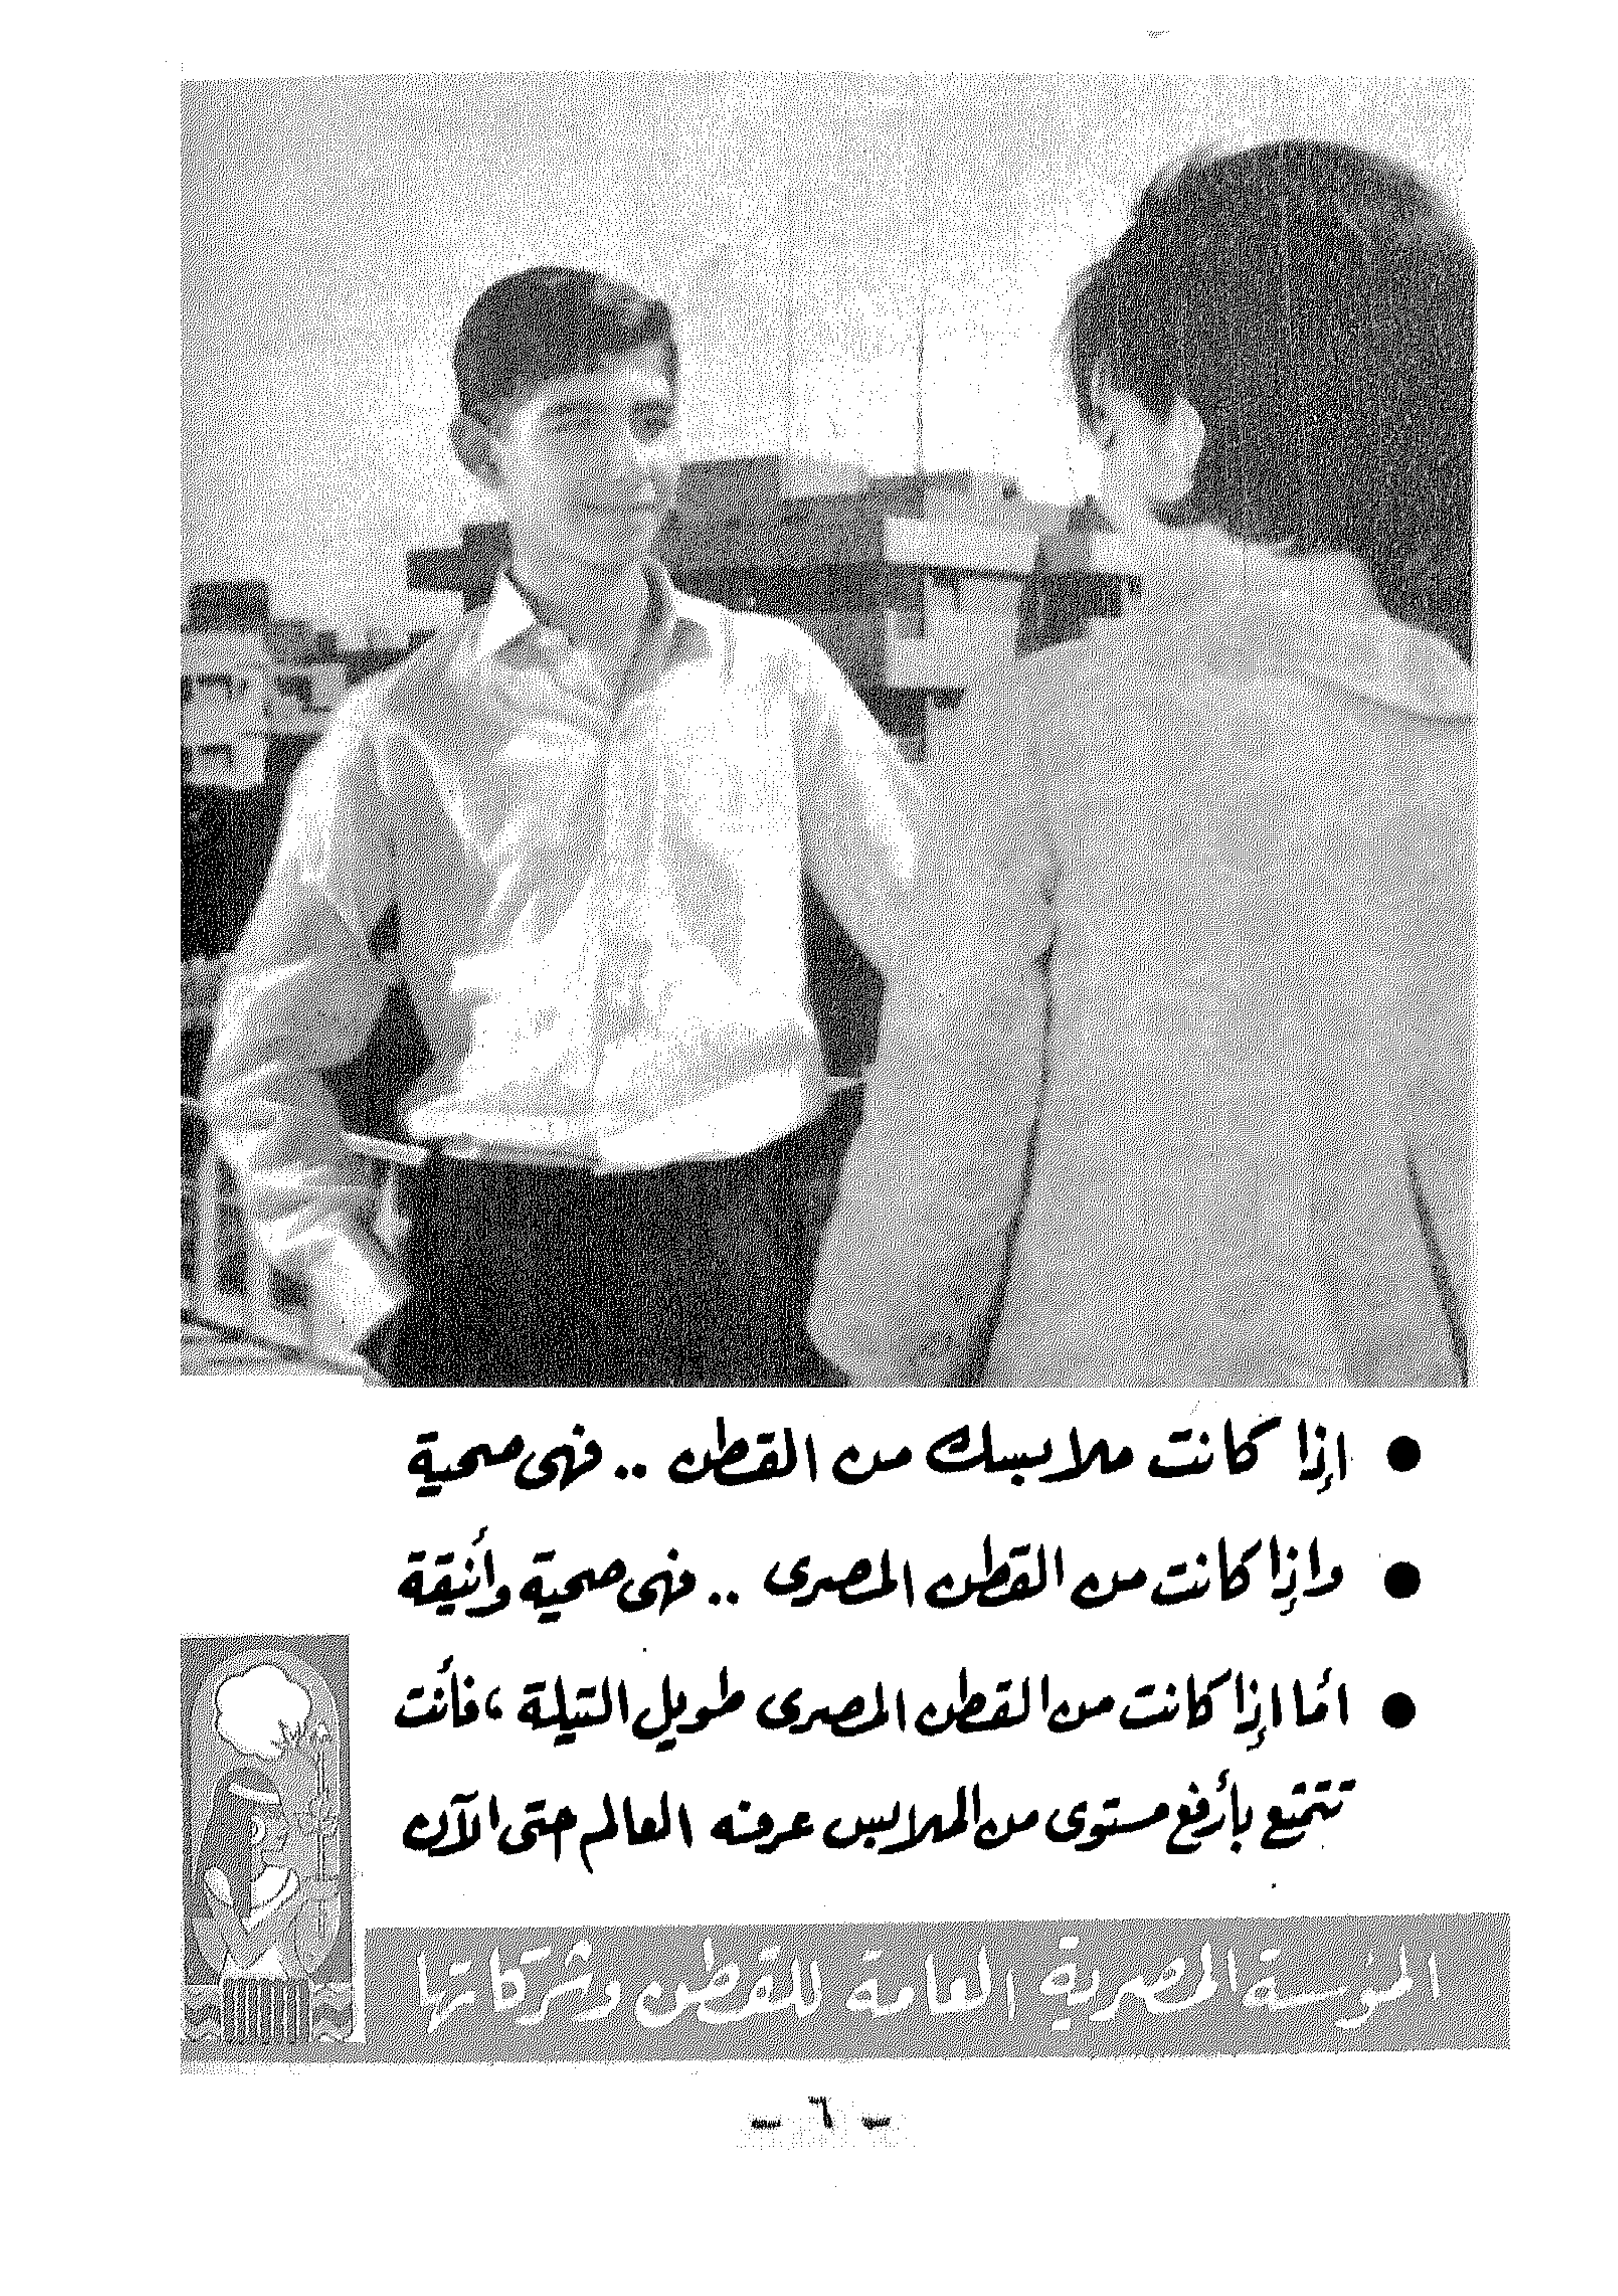 ● إذا كانت ملابسك من القطن .. فهى صحية
● وإذا كانت من القطن المصرى .. فهى صحية وأنيقة
● أما إذا كانت من القطن المصرى طويل التيلة ، فأنت
تتمتع بأرفع مستوى من الملابس عرفه العالم حتى الآن
المؤسسة المصرية العامة للقطن وشركاتها
- ٦ -